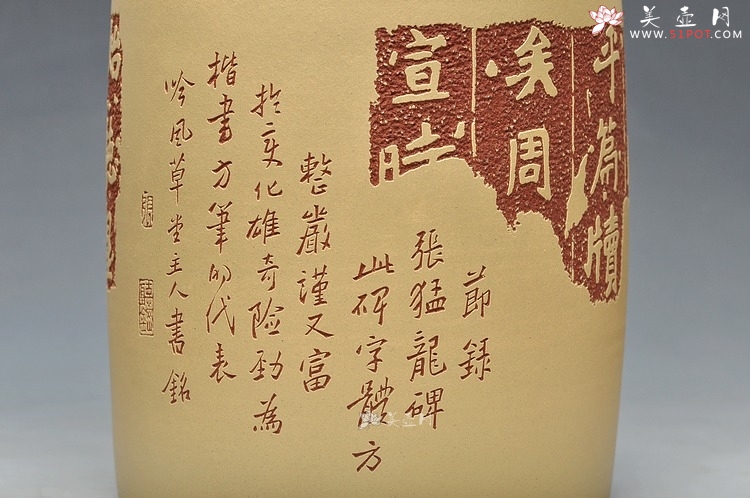 平篇牘
美周
宣时
節錄
張猛龍碑
此碑字體方
整嚴謹又富
於变化雄奇險勁為
楷書方筆的代表
吟風草堂主人書銘
美壶网
WWW.51POT.COM
美壶网